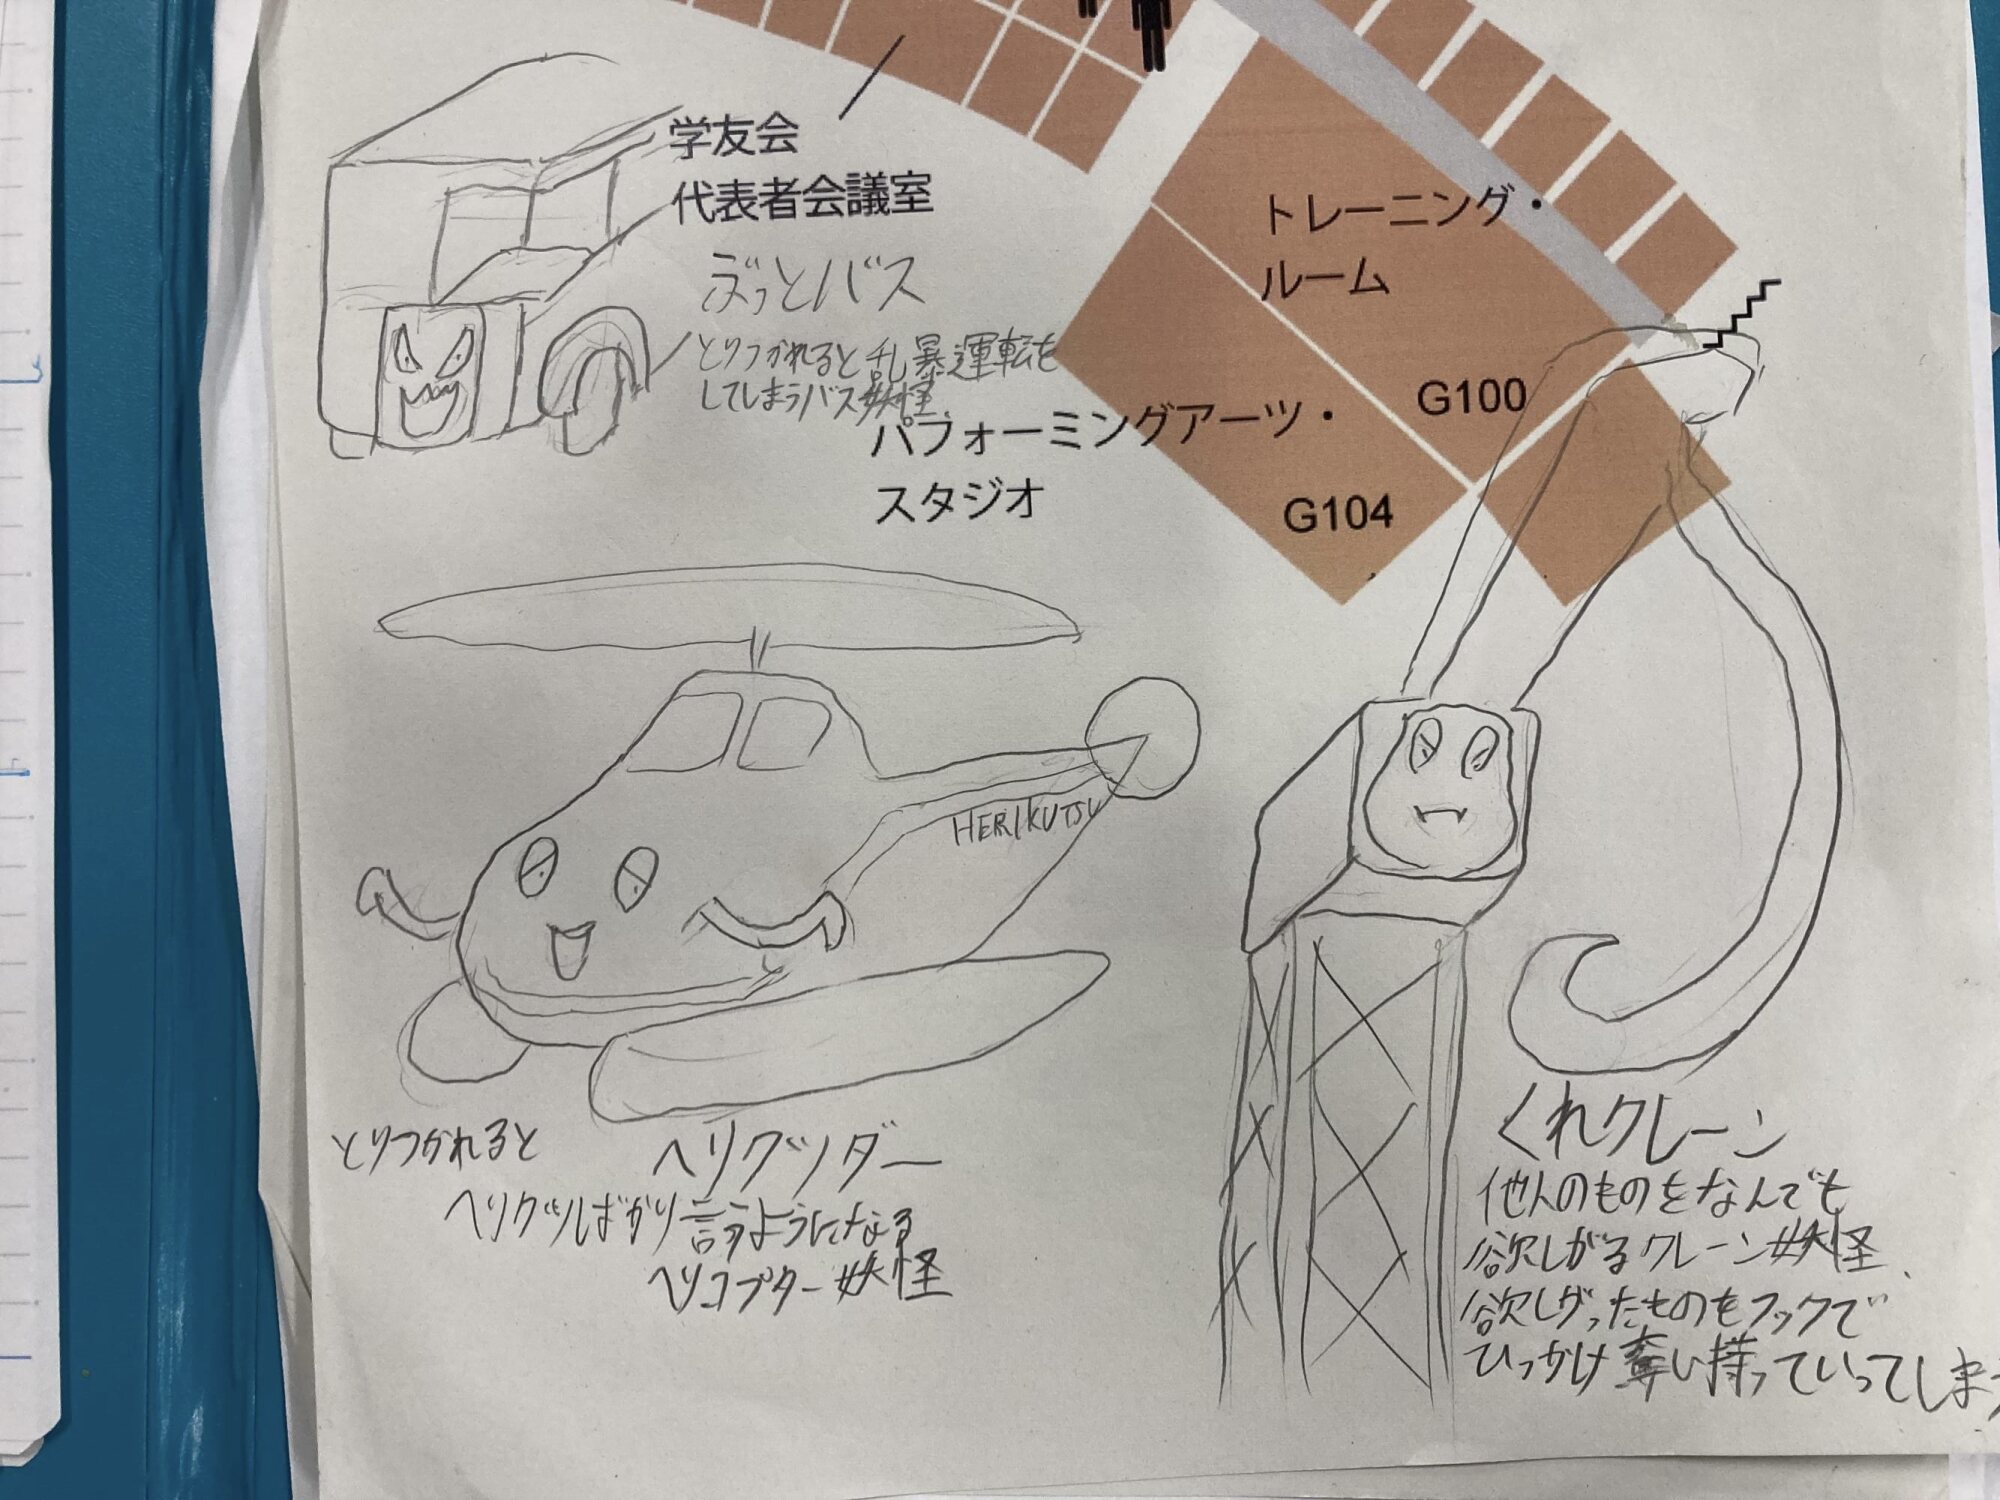 学友会
代表者会議室
ぶっとバス
とりつかれると乱暴運転を
してしまうバス妖怪
トレーニング・
ルーム
G100
パフォーミングアーツ・
スタジオ
G104
HERIKUTSU
とりつかれると
ヘリクツダー
ヘリクツばかり言うようになる
ヘリコプター妖怪
くれクレーン
他人のものをなんでも
欲しがるクレーン妖怪、
欲しがったものをフックで
ひっかけ奪い持っていってしまう